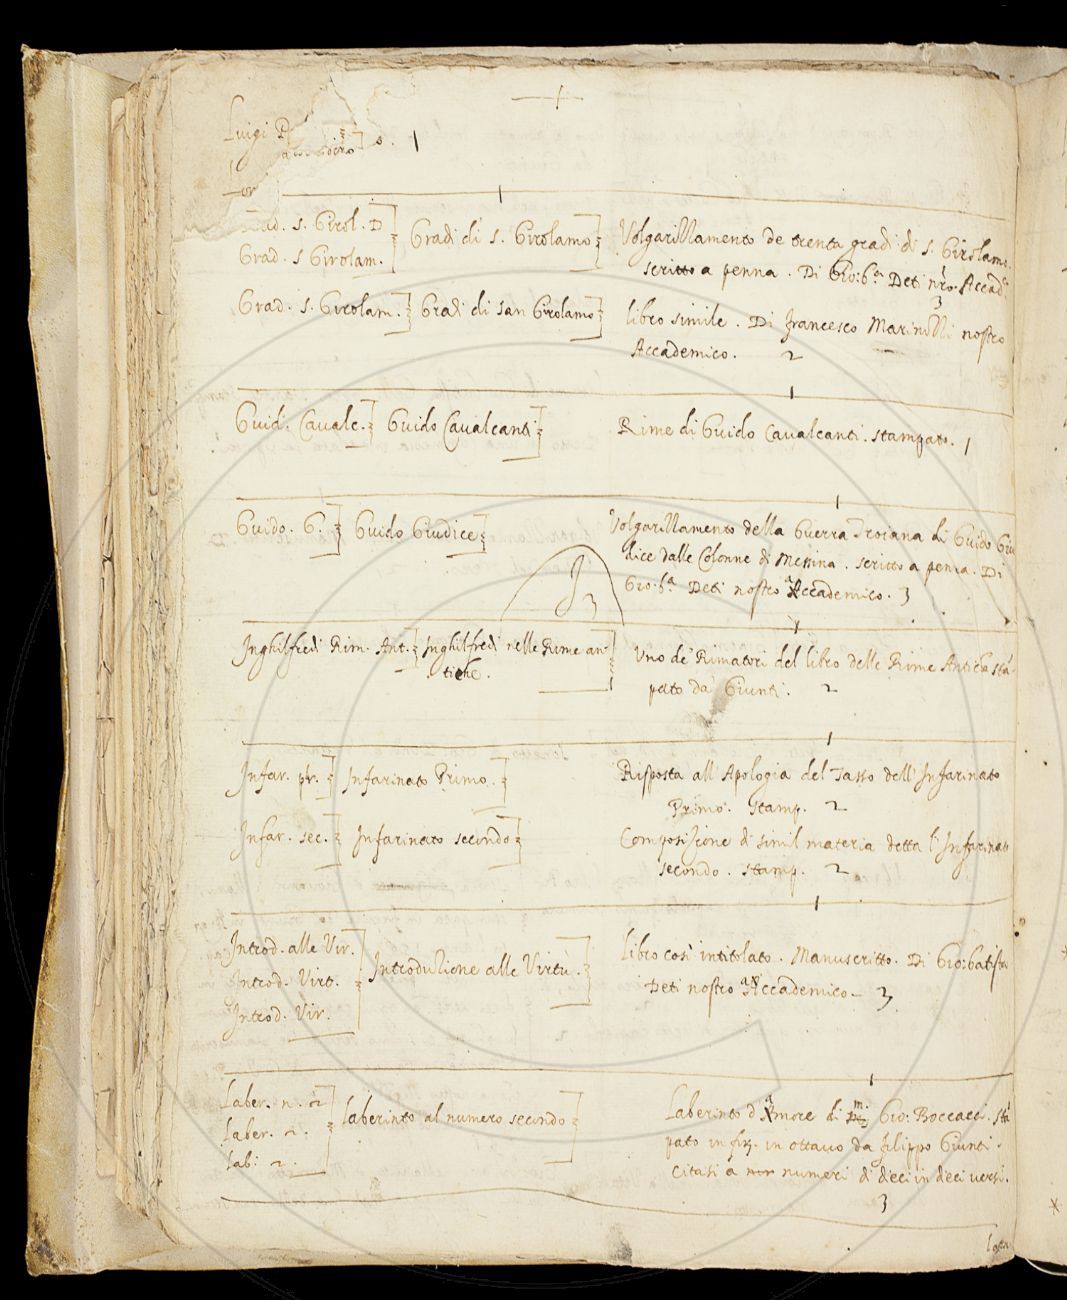 Luigi P
1
Grad. S. Girol. D
Grad. S Girolam.
Gradi di S. Girolamo
Volgarizzamento de trenta gradi di S. Girolamo.
scritto a penna. Di Gio: b.a Deti nro. Accad.
3
Grad. S. Girolam.
Gradi di san Girolamo
libro simile. Di francesco Marinozzi nostro
Accademico. 2
Guid. Cavalc.
Guido Cavalcanti
Rime di Guido Cavalcanti. stampato. 1
Guido. G.
Guido Giudice
Volgarizzamento della Guerra Troiana di Guido Giu
dice dalle Colonne di Messina. scritto a penna. Di
Gio: b.a Deti nostro Accademico. 3
J 3
Inghilfredi Rim. Ant.
Inghilfredi nelle Rime an
tiche.
Uno de Rimatori del libro delle Rime Antiche stā
pato da Giunti. 2
Infar. pr.
Infarinato Primo.
Risposta all'Apologia del Tasso dell'Infarinato
Primo. stamp. 2
Infar. sec.
Infarinato secondo
Composizione di simil materia detta l'Infarinato
secondo. stamp. 2
Introd. alle Vir.
Introd. Virt.
Introd. Vir.
Introduzione alle Virtù.
libro così intitolato. Manuscritto. Di Gio: batista
Deti nostro Accademico - 3
Laber. n. 2
Laber. 2.
Lab: 2.
laberinto al numero secondo
Laberinto d'Amore di m. Gio: Boccacci. stā
pato in fir. in ottavo da filippo Giunti.
Citasi a numeri di dieci in dieci versi.
3